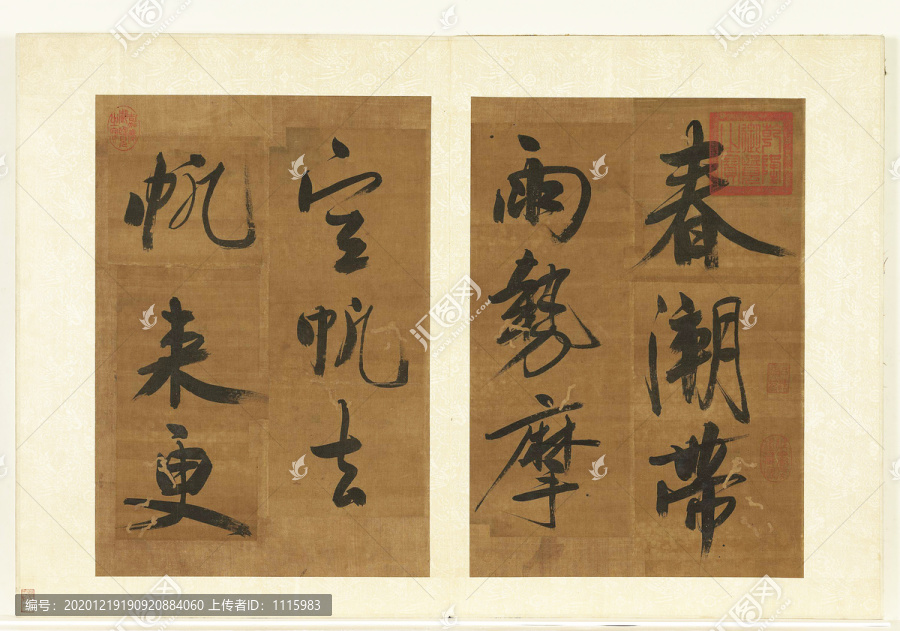 春潮帶
雨勢摩
空帆去
帆来更
编号: 20201219190920884060 上传者ID: 1115983
汇图网